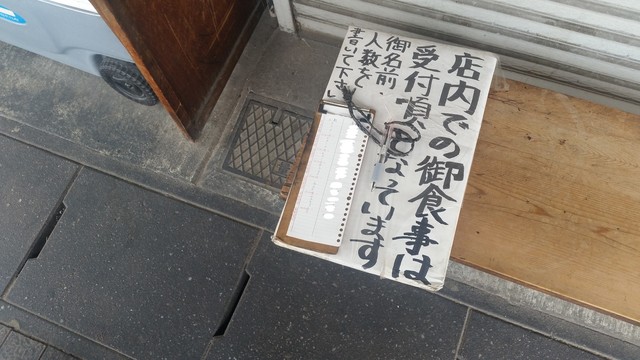 店内での御食事は
受付順となっています
御名前、
人数を
書いて下さい